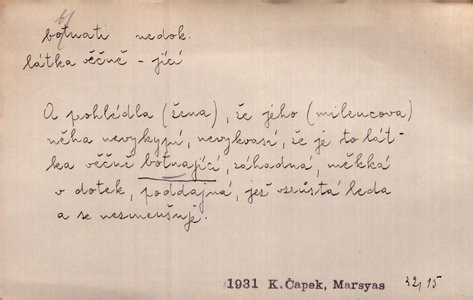 botnati nedok.
látka věčně - jící
A pohlédla (žena), že jeho (milencova)
něha nevykypí, nevykvasí, že je to lát-
ka věčně botnající, záhadná, měkká
v dotek, poddajná, jež vzrůstá leda
a se nezmenšuje.
1931 K. Čapek, Marsyas 32, 15